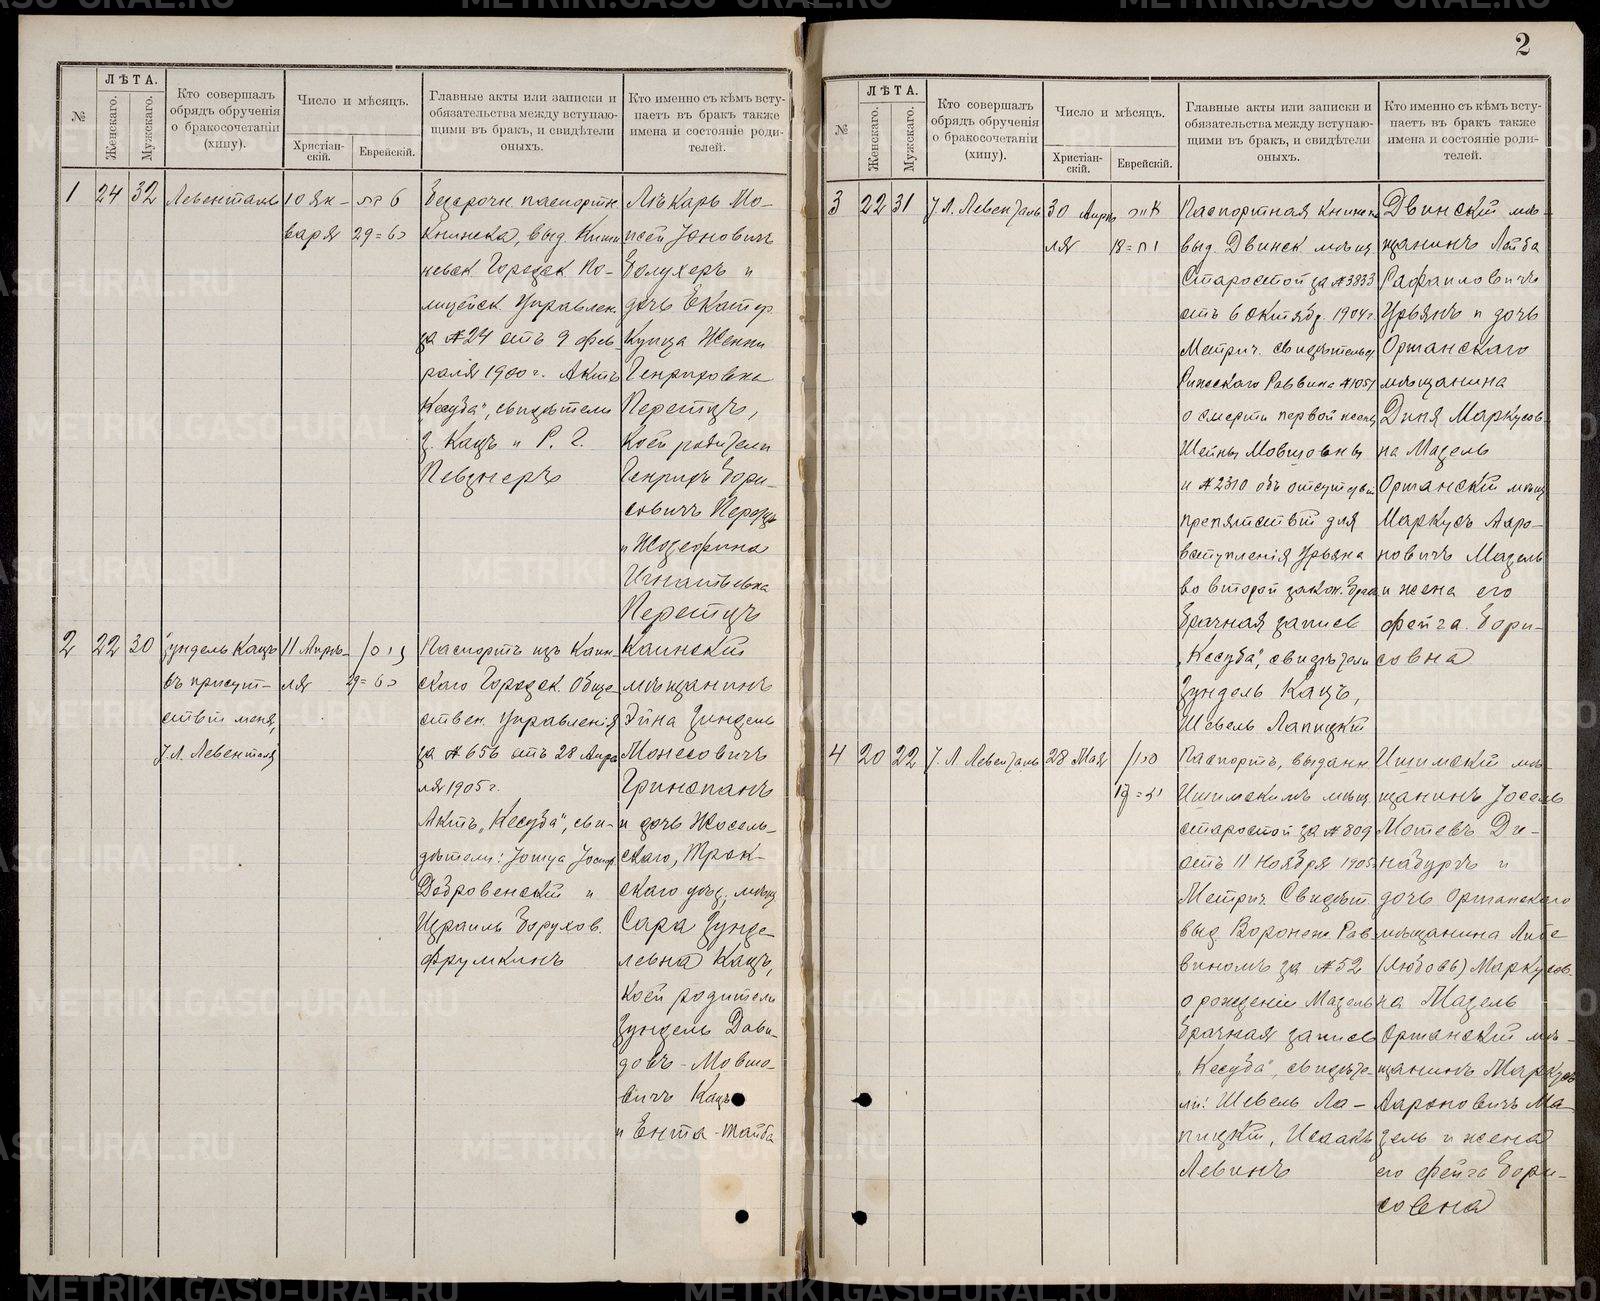 2
№
ЛѢТА.
Женскаго.
Мужскаго.
Кто совершалъ
обрядъ обрученія
о бракосочетаніи
(хипу).
Число и мѣсяцъ.
Христіан-
скій.
Еврейскій.
Главные акты или записки и
обязательства между вступаю-
щими въ бракъ, и свидѣтели
оныхъ.
Кто именно съ кѣмъ всту-
паетъ въ бракъ также
имена и состояніе роди-
телей.
1
24
32
Левенталь
10 Ян-
варя
Безсрочн. паспортн.
книжка, выд. Киши
невск. Городск. По-
лицейск. Управлен.
за №24 отъ 9 фев-
раля 1900 г. Актъ
„Кесуба", свидѣтели
З. Кацъ и Р. Г.
Певзнеръ
Лѣкарь Мо-
исей Іоновичъ
Болухеръ и
дочь Екатер.
Купца Женни
Генриховна
Перетцъ,
коей родители
Генрихъ Бори-
совичъ Перетцъ
и Жозефина
Игнатьевна
Перетцъ
2
22
30
Зундель Кацъ
въ присут-
ствіи меня,
І. Л. Левенталя
11 Апрѣ-
ля
Паспортъ изъ Каин-
скаго Городск. Обще-
ствен. Управленія
за №656 отъ 28 Апрѣ
ля 1905 г.
Актъ „Кесуба", сви-
дѣтели:
Добровенскій и
Израиль Борухов.
Фрумкинъ
Каинскій
мѣщанинъ
Зундель
Монесовичъ
Гринспанъ
и дочь Жосель-
скаго, Трок-
скаго уѣзд. мѣщ.
Сара Зунде-
левна Кацъ,
коей родители
Зундель Дави-
довъ-Мовшо-
вичъ Кацъ
и Ента-Тайба
№
ЛѢТА.
Женскаго.
Мужскаго.
Кто совершалъ
обрядъ обрученія
о бракосочетаніи
(хипу).
Число и мѣсяцъ.
Христіан-
скій.
Еврейскій.
Главные акты или записки и
обязательства между вступаю-
щими въ бракъ, и свидѣтели
оныхъ.
Кто именно съ кѣмъ всту-
паетъ въ бракъ также
имена и состояніе роди-
телей.
3
22
31
І. Л. Левенталь
30 Апрѣ
ля
Паспортная книжка
выд. Двинск. мѣщ.
Старостой за №3833
отъ 6 Октябр. 1904 г.
Метрич. свидѣтельс.
Рижскаго Раввина №1051
о смерти первой жены
Шейны Мовшовны
и №2310 объ отсутствіи
препятствій для
вступленія Урьяна
во второй закон. бракъ
Брачная запись
„Кесуба", свидѣтели
Зундель Кацъ,
Шевель Лапицкій
Двинскій мѣ-
щанинъ Лейба
Рафаиловичъ
Урьянъ и дочь
Оршанскаго
мѣщанина
Диня Маркусов-
на Мазель
Оршанскій мѣщ.
Маркусъ Ааро-
новичъ Мазель
и жена его
Фейга Бори-
совна
4
20
22
І. Л. Левенталь
28 Мая
Паспортъ, выданн.
Ишимскимъ мѣщ.
старостой за №809
отъ 11 Ноября 1905
Метрич. Свидѣт.
выд. Воронеж. Рав
виномъ за №52
о рожденіи Мазель
Брачная запись
„Кесуба", свидѣте-
ли: Шевель Ла-
пицкій, Исаакъ
Левинъ
Ишимскій мѣ-
щанинъ Іосель
Мотевъ Ди-
набургъ и
дочь Оршанскаго
мѣщанина Либе
(Любовь) Маркусов-
на Мазель
Оршанскій мѣ-
щанинъ Маркусъ
Аароновичъ Ма-
зель и жена
его Фейга Бори-
совна